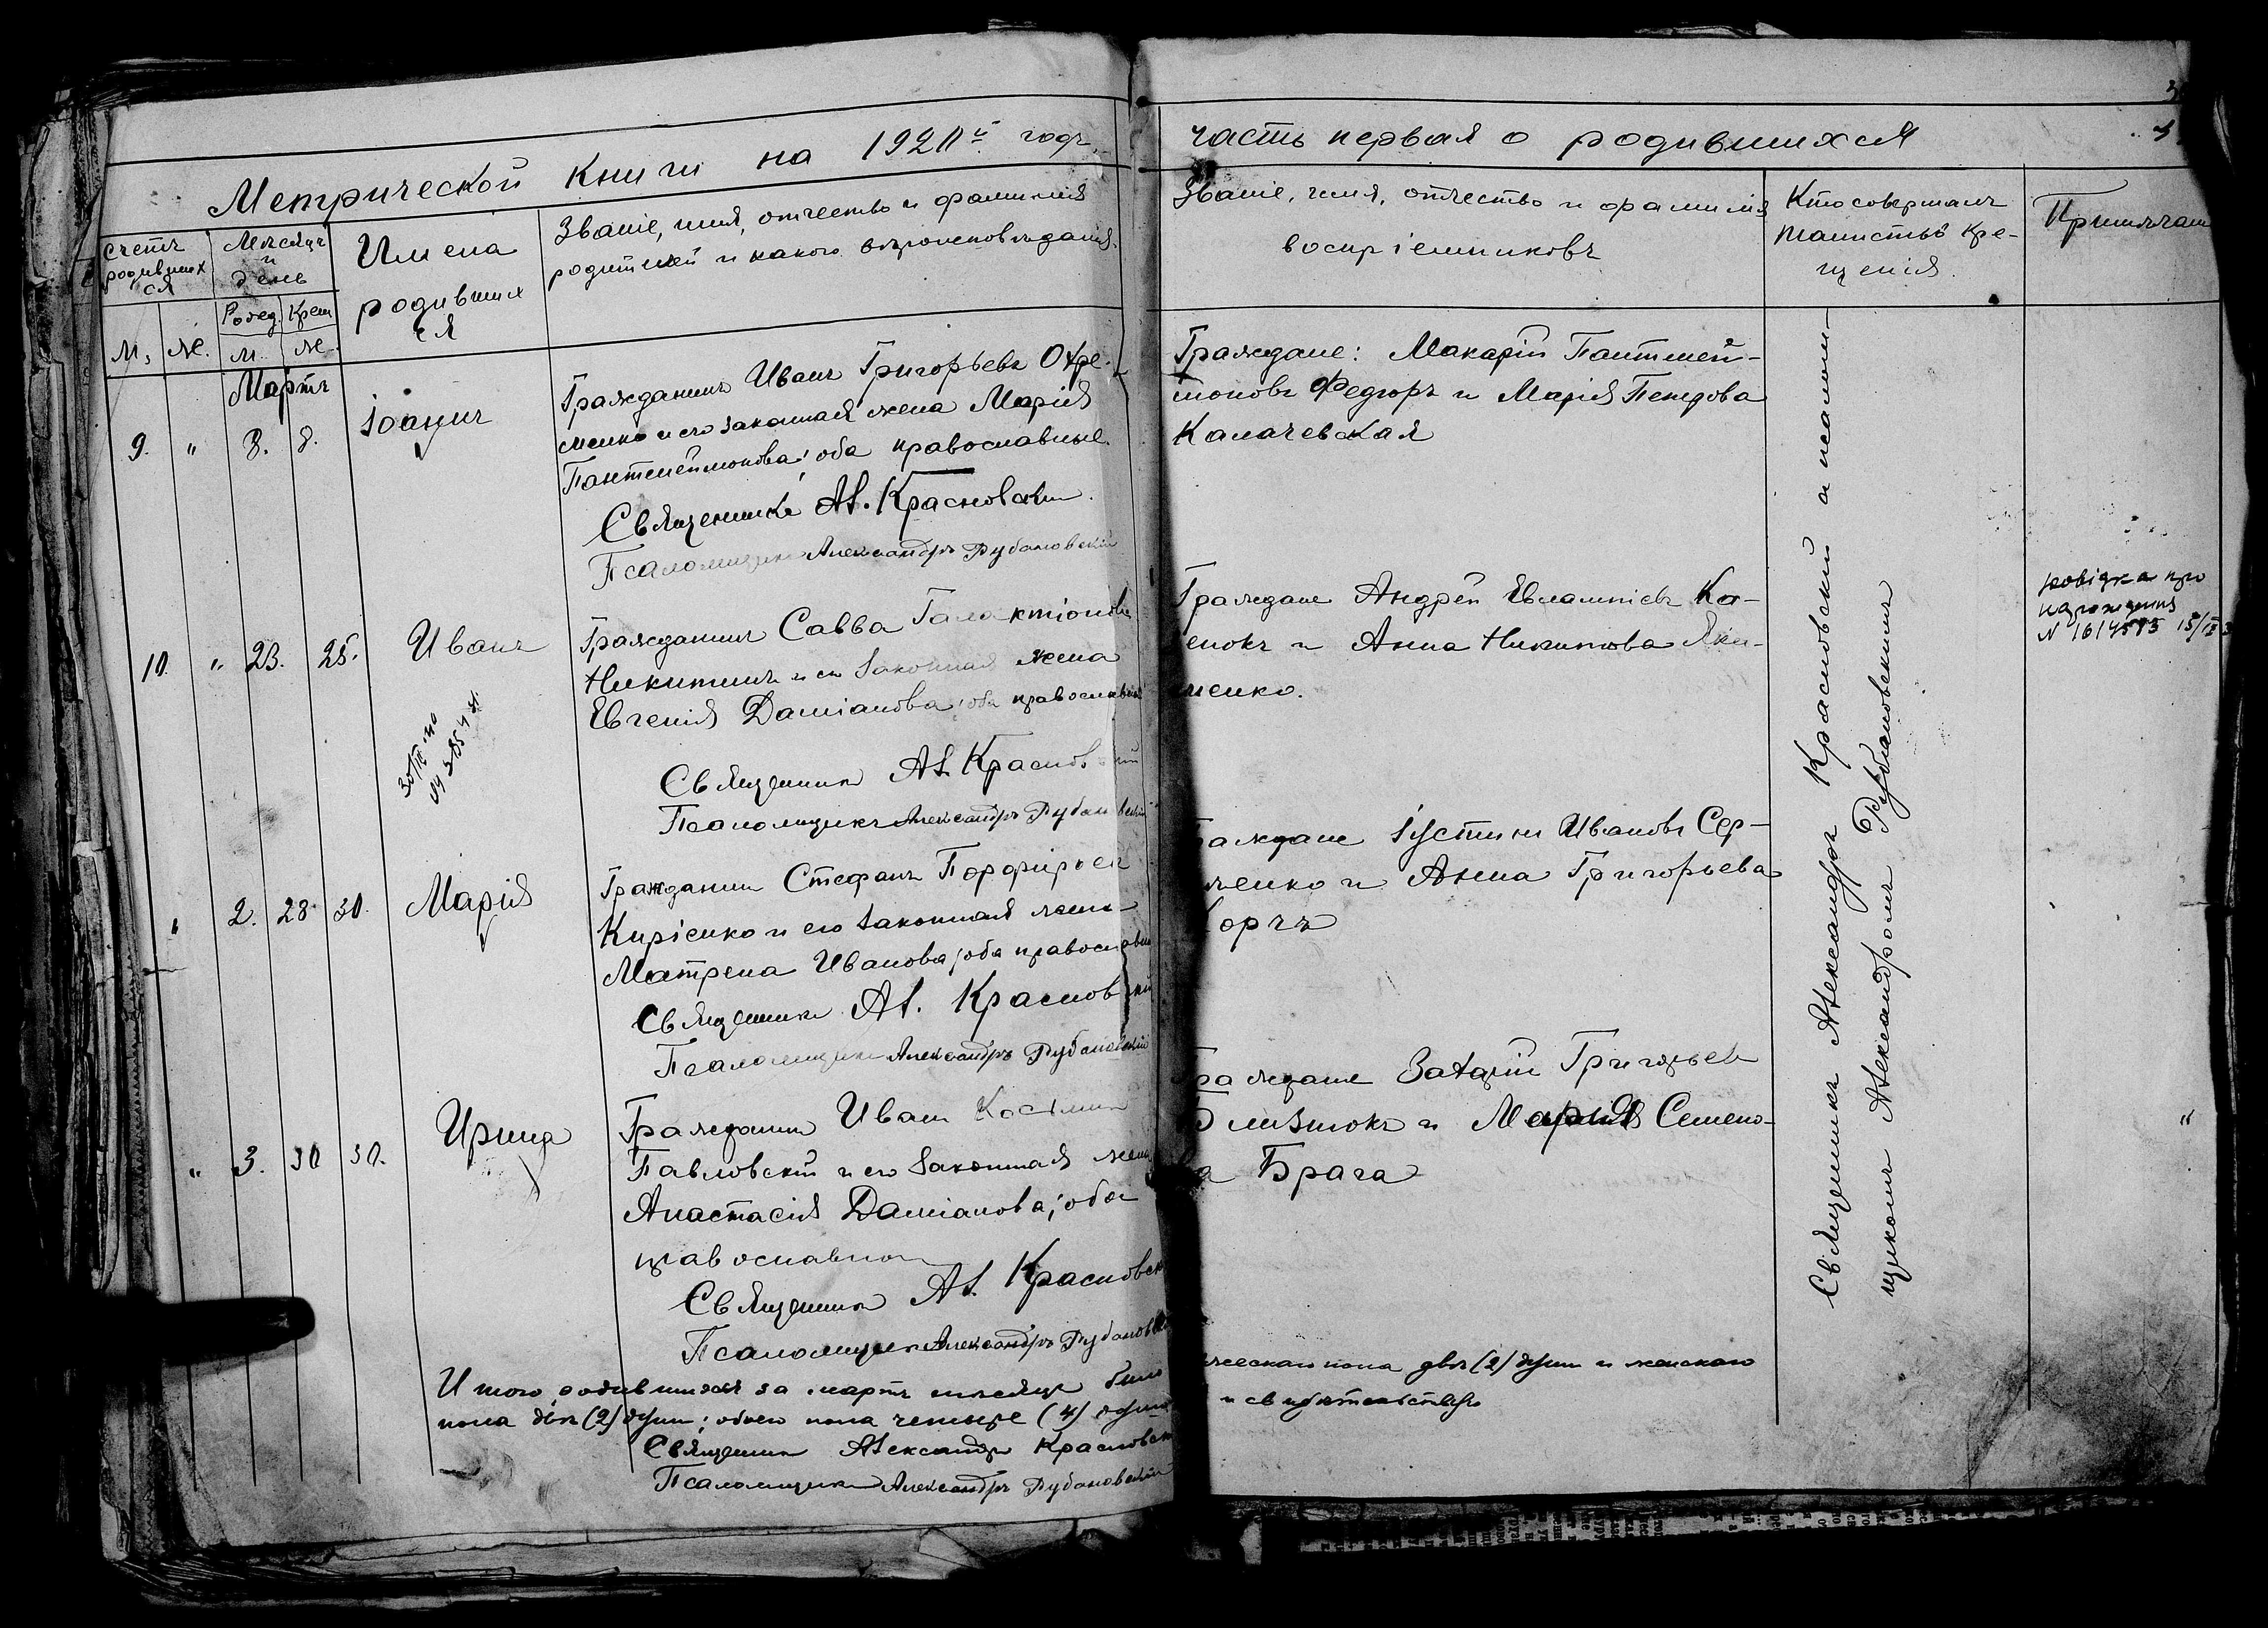 Метрической книги на 1920й годъ
часть первая о родившихся
Счетъ
родивших
ся
Месяцъ
и
день
Имена
родивших
ся
Званіе, имя, отчество и фамилія
родителей и какого вѣроисповѣданія.
Званіе, имя, отчество и фамилія
воспріемниковъ
Кто совершалъ
таинство кре-
щенія.
Примѣчан
М. Ж.
Рожд. Крещ
М. Ж.
Мартъ
9. " 8. 8. Іоаннъ
Гражданинъ Иванъ Григорьевъ Охре-
менко и его законная жена Марія
Пантелеймонова; оба православные.
Священникъ Ал. Красновскій
Псаломщикъ Александръ Рубановскій
Граждане: Макарій Пантелей-
моновъ Федоръ и Марія
Калачевская
10 " 23. 25. Иванъ
Гражданинъ Савва Галактіоновъ
Никитинъ и его законная жена
Евгенія Даміанова; оба православные
Священникъ Ал. Красновскій
Псаломщикъ Александръ Рубановскій
Граждане Андрей Евлампіевъ Ка-
енокъ и Анна Никитова Яки-
менко.
довідка про
народження
N 1614575
" 2. 28 30. Марія
Гражданинъ Стефанъ Порфирьевъ
Кирієнко и его законная жена
Матрена Иванова; оба православные
Священникъ Ал. Красновскій
Псаломщикъ Александръ Рубановскій
раждане Іустинъ Ивановъ Сер-
ченко и Анна Григорьева
Коргъ
" 3. 30 30. Ирина
Гражданинъ Иванъ Косьминъ
Павловскій и его законная жена
Анастасія Даміанова; оба
православные
Священникъ Ал. Красновскій
Псаломщикъ Александръ Рубановскій
раждане Григорьевъ
Близнюкъ и Марія Семено-
ва Брага
"
Священникъ Александръ Красновскій и псалом-
щикомъ Александромъ Рубановскимъ
Итого родившихся за мартъ мѣсяцъ было
мужескаго пола двѣ (2) души и женскаго
пола двѣ (2) души; обоего пола четыре (4) души
и свидѣтельствую
Священникъ Александръ Красновскій
Псаломщикъ Александръ Рубановскій